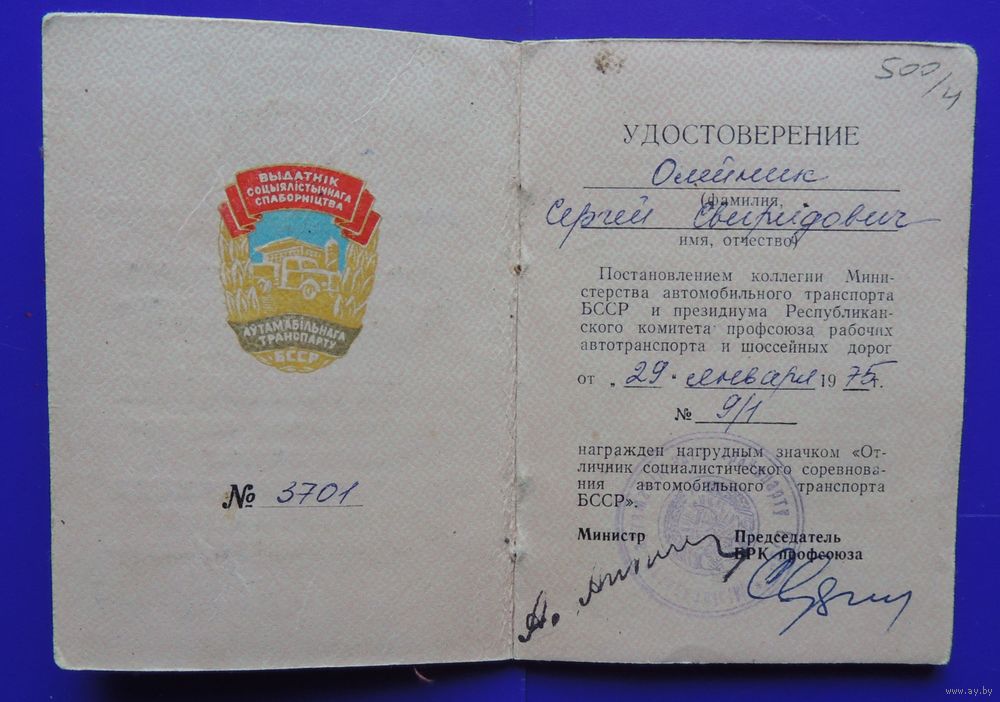 ВЫДАТНІК
СОЦЫЯЛІСТЫЧНАГА
СПАБОРНІЦТВА
АЎТАМАБІЛЬНАГА
ТРАНСПАРТУ
БССР
№ 3701
500/4
УДОСТОВЕРЕНИЕ
Олийник
(фамилия,
Сергей Свиридович
имя, отчество)
Постановлением коллегии Мини-
стерства автомобильного транспорта
БССР и президиума Республикан-
ского комитета профсоюза рабочих
автотранспорта и шоссейных дорог
от „ 29 " января 1975 г.
№ 9/1
награжден нагрудным значком «От-
личник социалистического соревнова-
ния автомобильного транспорта
БССР».
Министр Председатель
БРК профсоюза
www.ay.by